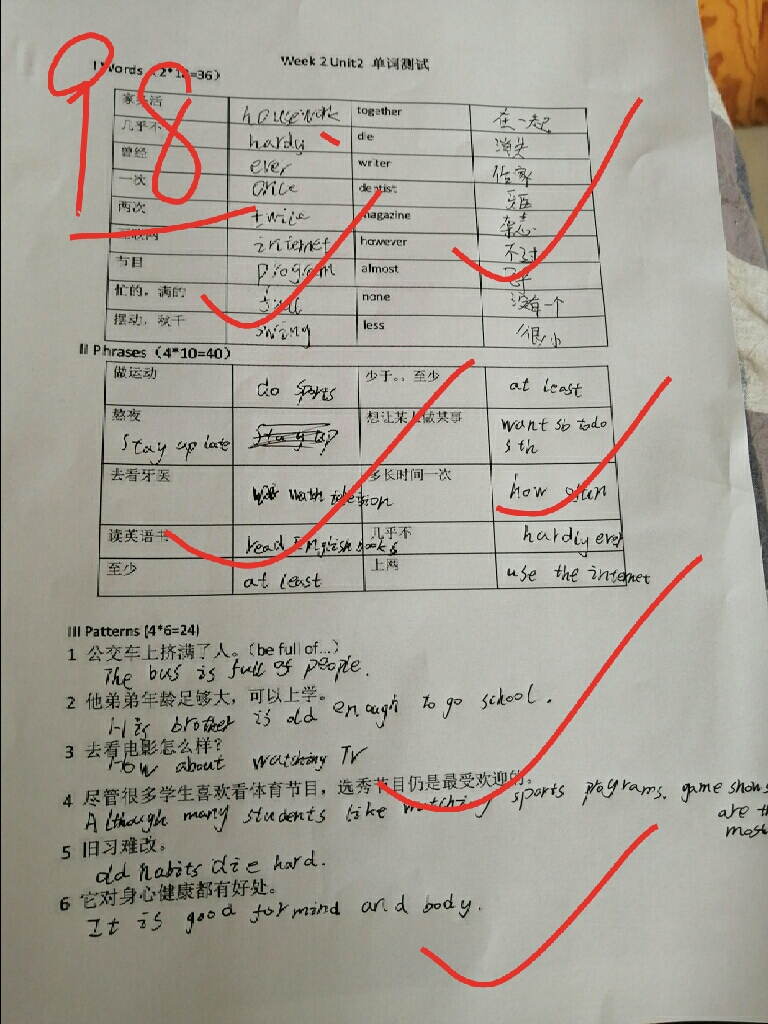 98
Week 2 Unit2 单词测试
I Words (2*18=36)
家务活 housework together 在一起
几乎不 hardy die 消失
曾经 ever writer 作家
一次 once dentist
两次 twice magazine 杂志
互联网 internet however 不过
节目 program almost 几乎
忙的，满的 full none 没有一个
摆动，秋千 swing less 很小
II Phrases (4*10=40)
做运动 do sports 少于。，至少 at least
熬夜 Stay up late 想让某人做某事 want sb todo sth
去看牙医 多长时间一次 how often
读英语书 read English books 几乎不 hardly ever
至少 at least 上网 use the internet
III Patterns (4*6=24)
1 公交车上挤满了人。(be full of...)
The bus is full of people.
2 他弟弟年龄足够大，可以上学。
His brother is old enough to go school.
3 去看电影怎么样？
How about watching TV
4 尽管很多学生喜欢看体育节目，选秀节目仍是最受欢迎的。
Although many students like watching sports programs. game shows
are th
most
5 旧习难改。
old habits die hard.
6 它对身心健康都有好处。
It is good for mind and body.